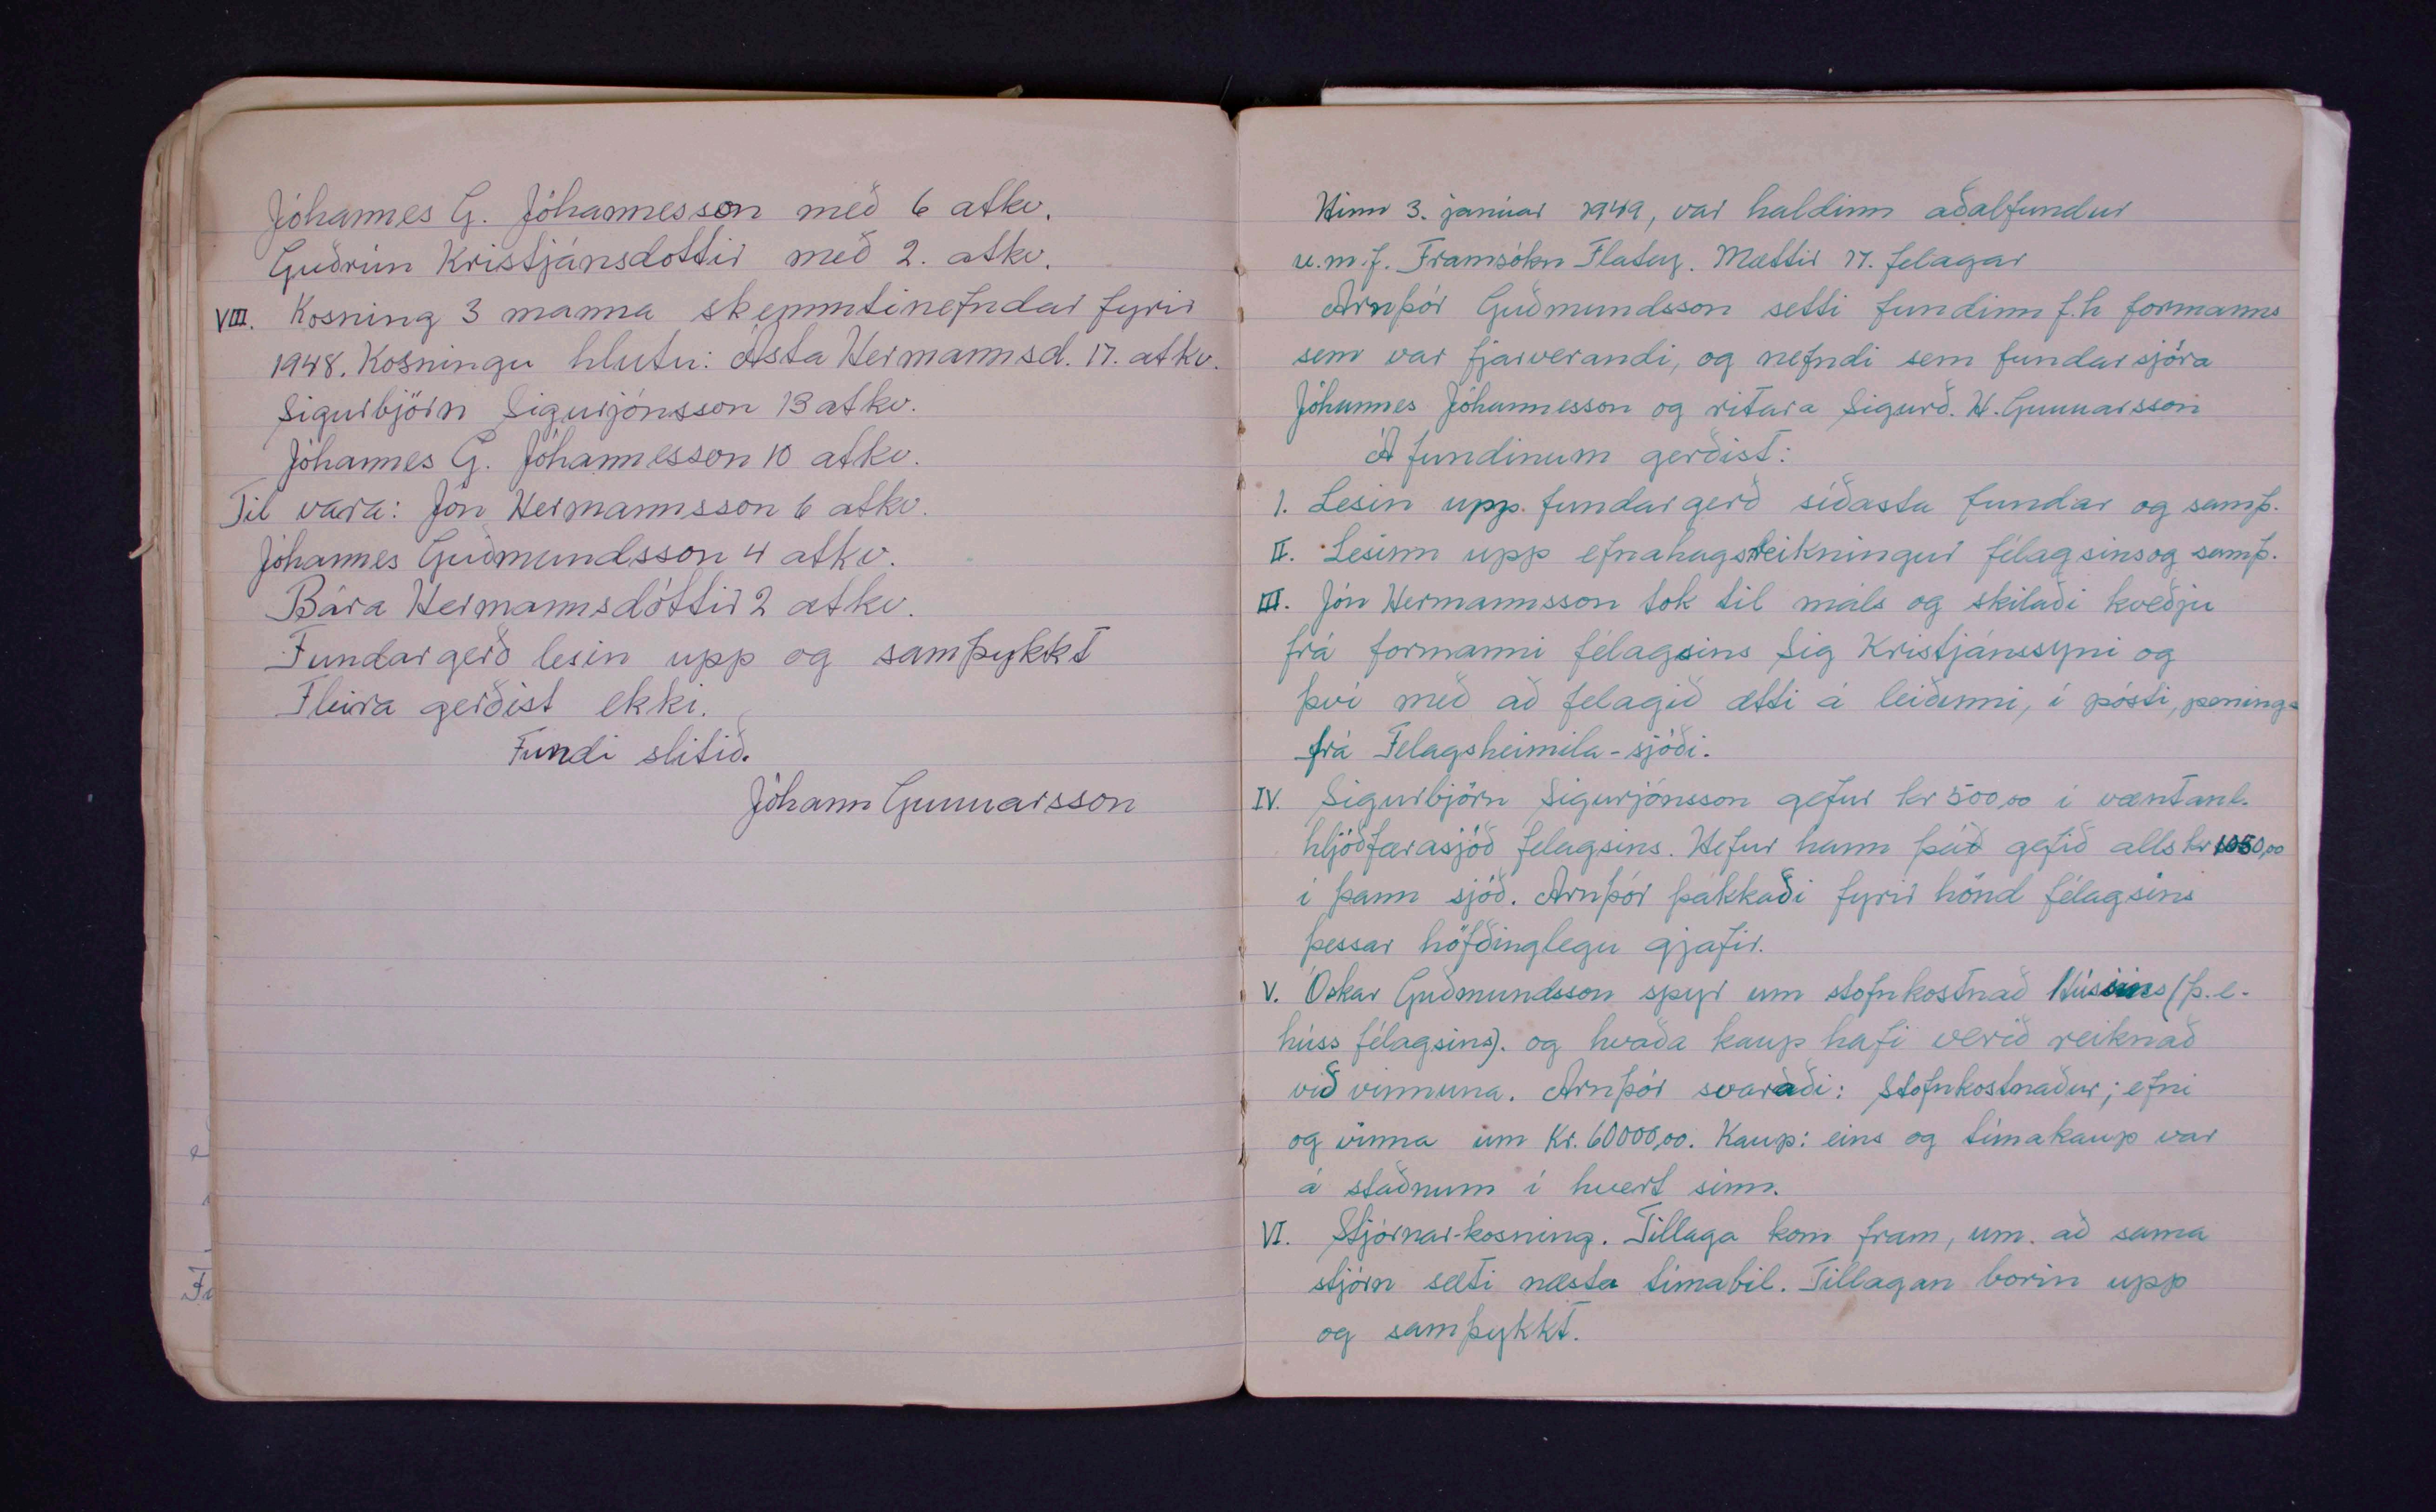 Jóhannes G. Jóhannesson með 6 atkv.
Guðrún Kristjánsdottir með 2. atkv.
VIII. Kosning 3 manna skemmtinefndar fyrir
1948. Kosningu hlutu: Ásta Hermannsd. 17. atkv.
Sigurbjörn Sigurjónsson 13 atkv.
Jóhannes G. Jóhannesson 10 atkv.
Til vara: Jón Hermannsson 6 atkv.
Jóhannes Guðmundsson 4 atkv.
Bára Hermannsdóttir 2 atkv.
Fundargerð lesin upp og samþykkt
Fleira gerðist ekki.
Fundi slitið.
Jóhann Gunnarsson
Hinn 3. janúar 1949, var haldinn aðalfundur
u.m.f. Framsókn Flatey. Mættir 17. felagar
Arnþór Guðmundsson setti fundinn f.h formanns
sem var fjarverandi, og nefndi sem fundarsjóra
Jóhannes Jóhannesson og ritara Sigurð. H. Gunnarsson
Á fundinum gerðist:
I. Lesin upp. fundargerð síðasta fundar og samþ.
II. Lesinn upp efnahagsreikningur félagsins og samþ.
III. Jón Hermannsson tok til máls og skilaði kveðju
frá formanni félagsins Sig Kristjánssyni og
því með að felagið ætti á leiðinni, í pósti, pening-
frá Felagsheimila-sjóði.
IV. Sigurbjörn Sigurjónsson gefur kr 500,00 í væntanl.
hljóðfærasjóð felagsins. Hefur hann það gefið alls kr 1050,00
í þann sjóð. Arnþór þakkaði fyrir hönd félagsins
þessar höfðinglegu gjafir.
V. Óskar Guðmundsson spyr um stofnkostnað Hússins (þ.e.
húss félagsins). og hvaða kaup hafi verið reiknað
við vinnuna. Arnþór svaraði: Stofnkostnaður; efni
og vinna um Kr. 60000,00. Kaup: eins og tímakaup var
á staðnum í hvert sinn.
VI. Stjórnar-kosning. Tillaga kom fram, um. að sama
stjórn sæti næsta tímabil. Tillagan borin upp
og samþykkt.